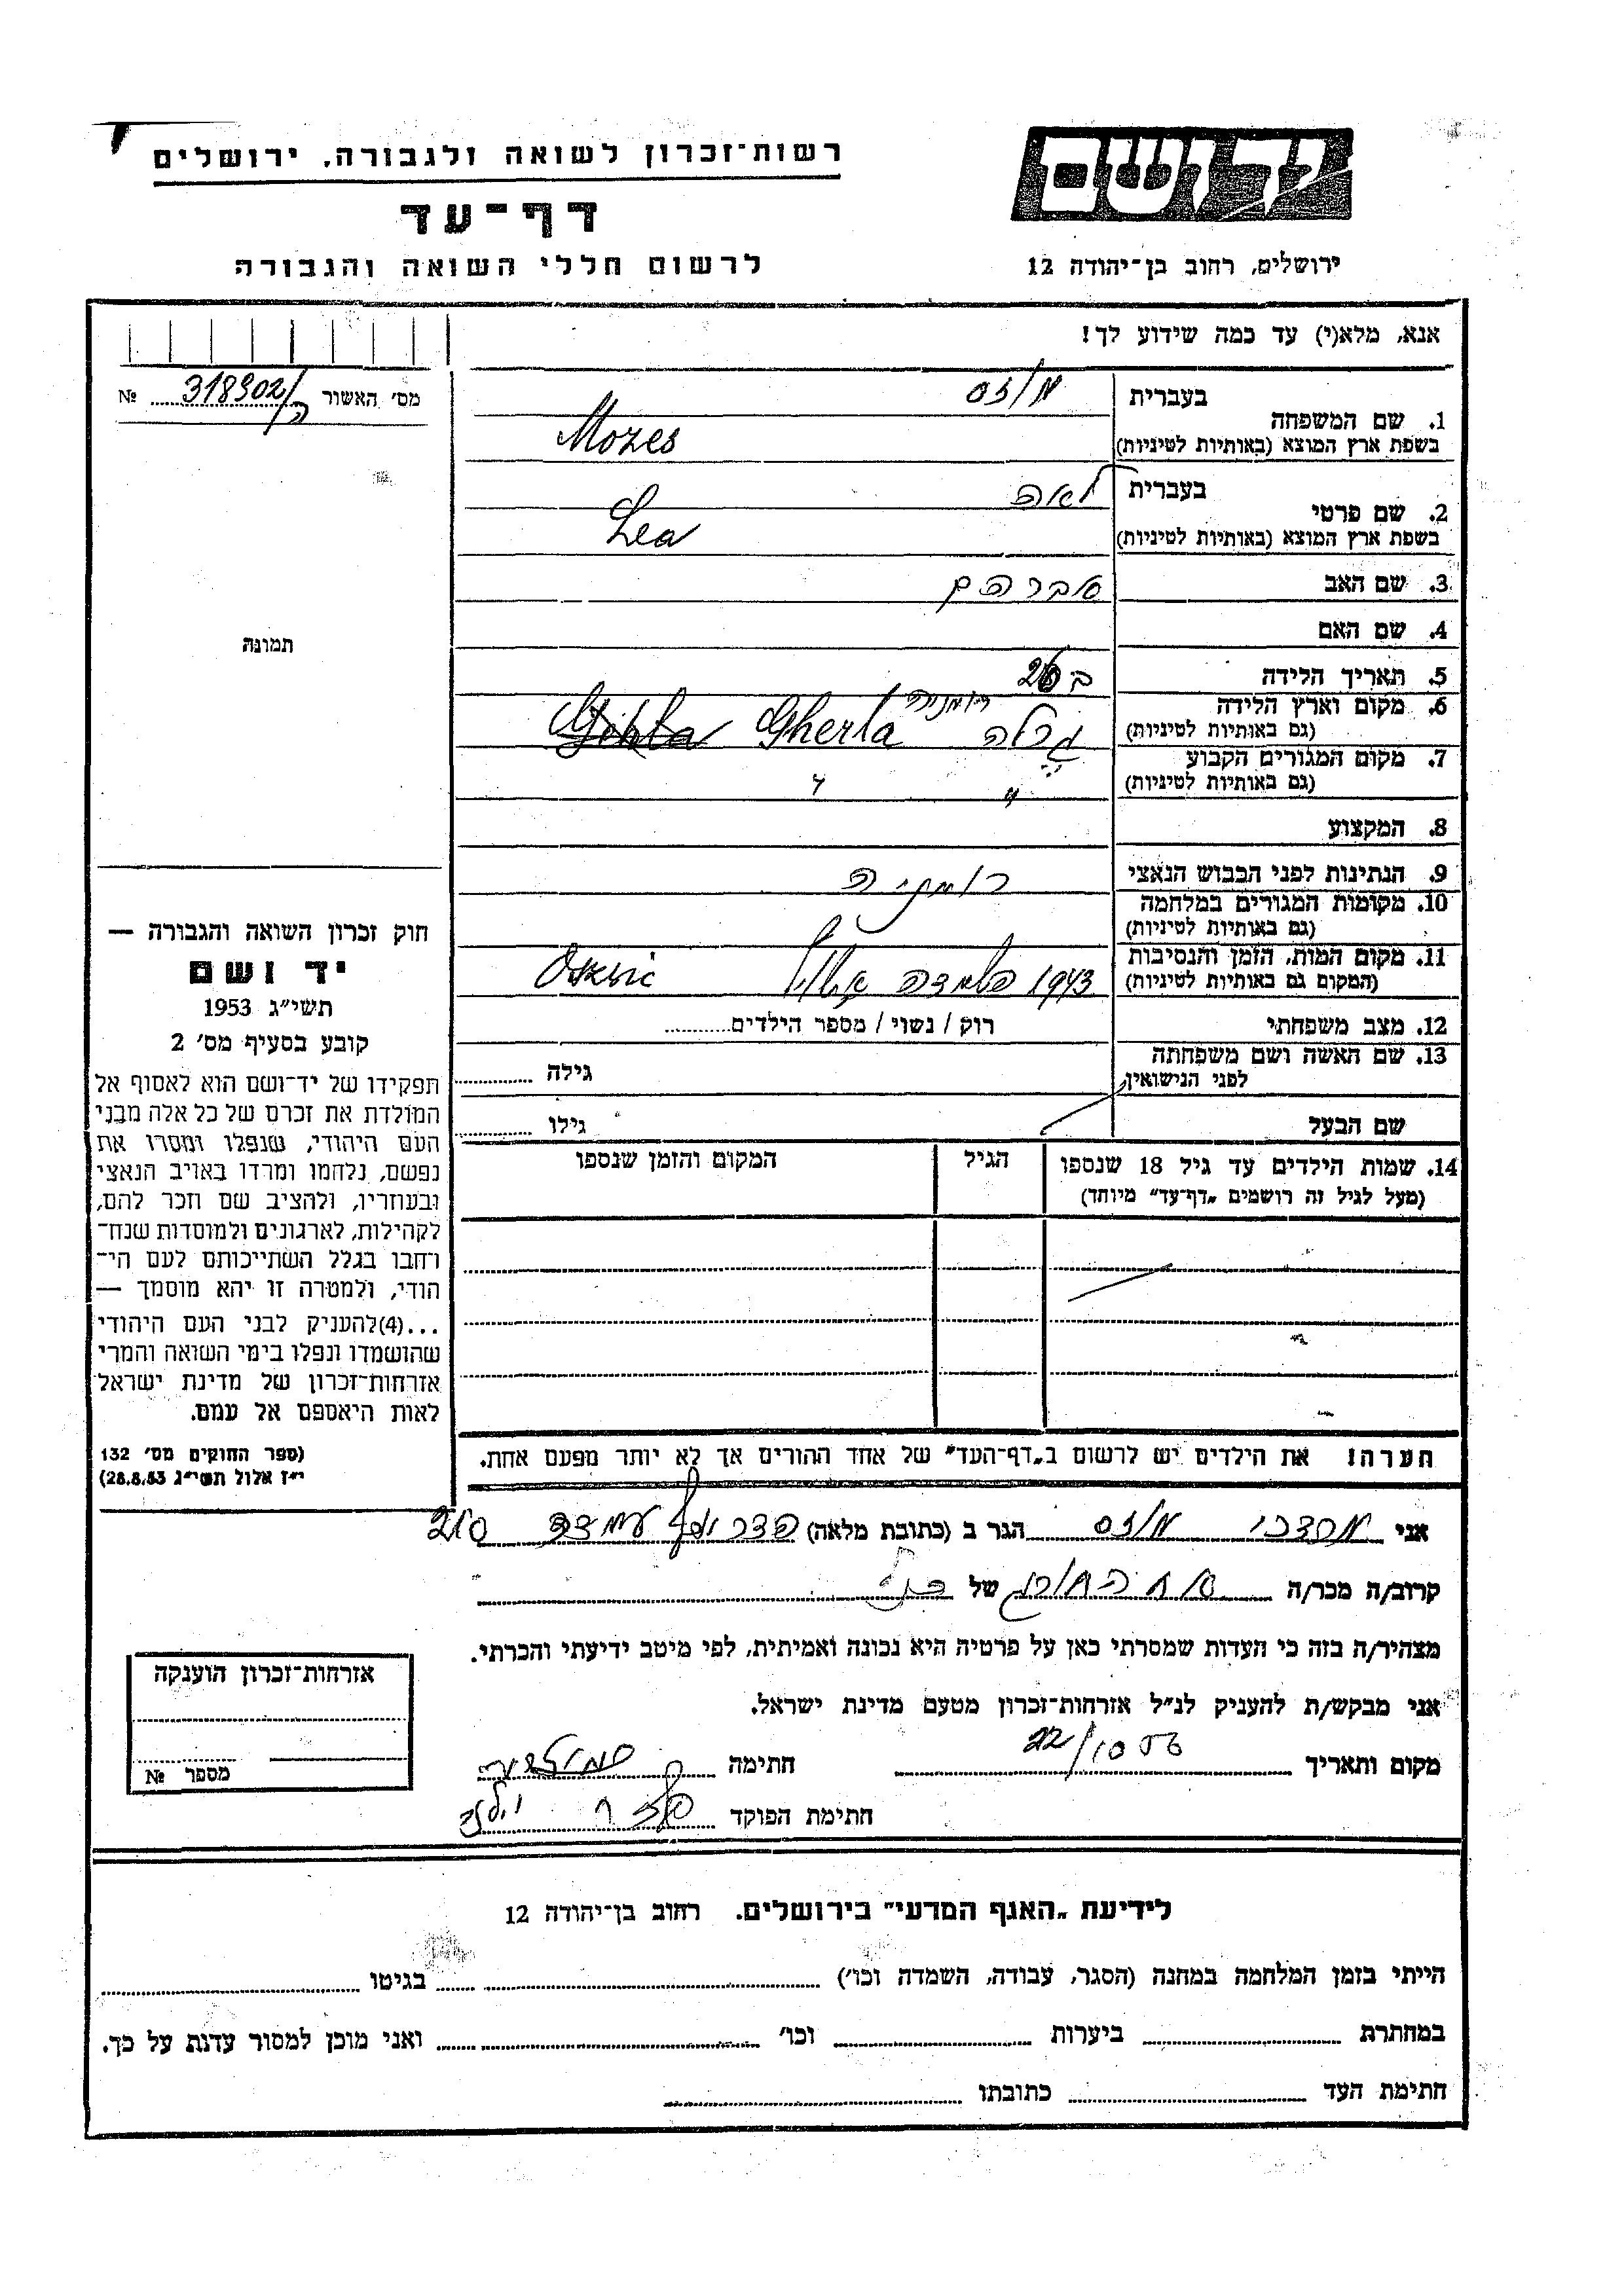 רשות־זכרון לשואה ולגבורה, ירושלים
דף־עד
לרשום חללי השואה והגבורה
יד ושם
ירושלים, רחוב בן־יהודה 12
אנא, מלא(י) עד כמה שידוע לך!
מס׳ האשור 318302/ה №
תמונה
חוק זכרון השואה והגבורה —
יד ושם
תשי״ג 1953
קובע בסעיף מס׳ 2
תפקידו של יד־ושם הוא לאסוף אל
המולדת את זכרם של כל אלה מבני
העם היהודי, שנפלו ומסרו את
נפשם, נלחמו ומרדו באויב הנאצי
ובעוזריו, ולהציב שם וזכר להם,
לקהילות, לארגונים ולמוסדות שנח־
רחבו בגלל השתייכותם לעם הי־
הודי, ולמטרה זו יהא מוסמך —
...(4)להעניק לבני העם היהודי
שהושמדו ונפלו בימי השואה והמרי
אזרחות־זכרון של מדינת ישראל
לאות היאספם אל עמם.
(ספר החוקים מס׳ 132
י״ז אלול תשי״ג 28.8.53)
בעברית מוזס
1. שם המשפחה
בשפת ארץ המוצא (באותיות לטיניות) Mozes
בעברית לאה
2. שם פרטי
בשפת ארץ המוצא (באותיות לטיניות) Lea
3. שם האב אברהם
4. שם האם
5. תאריך הלידה
6. מקום וארץ הלידה
(גם באותיות לטיניות) גרלה רומניה Gherla
7. מקום המגורים הקבוע
(גם באותיות לטיניות) " "
8. המקצוע
9. הנתינות לפני הכבוש הנאצי רומניה
10. מקומות המגורים במלחמה
(גם באותיות לטיניות)
11. מקום המות, הזמן והנסיבות
(המקום גם באותיות לטיניות) 1943 השמדה
12. מצב משפחתי רוק / נשוי / מספר הילדים
13. שם האשה ושם משפחתה
לפני הנישואין גילה
שם הבעל גילו
14. שמות הילדים עד גיל 18 שנספו הגיל המקום והזמן שנספו
(מעל לגיל זה רושמים „דף־עד״ מיוחד)
הערה! את הילדים יש לרשום ב„דף־העד״ של אחד ההורים אך לא יותר מפעם אחת.
אני מרדכי מוזס הגר ב (כתובת מלאה)
קרוב/ה מכר/ה של
מצהיר/ה בזה כי העדות שמסרתי כאן על פרטיה היא נכונה ואמיתית, לפי מיטב ידיעתי והכרתי.
אני מבקש/ת להעניק לנ״ל אזרחות־זכרון מטעם מדינת ישראל.
מקום ותאריך 22/10 56 חתימה
חתימת הפוקד
אזרחות־זכרון הוענקה
מספר №
לידיעת „האגף המדעי״ בירושלים. רחוב בן־יהודה 12
הייתי בזמן המלחמה במחנה (הסגר, עבודה, השמדה וכו׳) בגיטו
במחתרת ביערות וכו׳ ואני מוכן למסור עדות על כך.
חתימת העד כתובתו